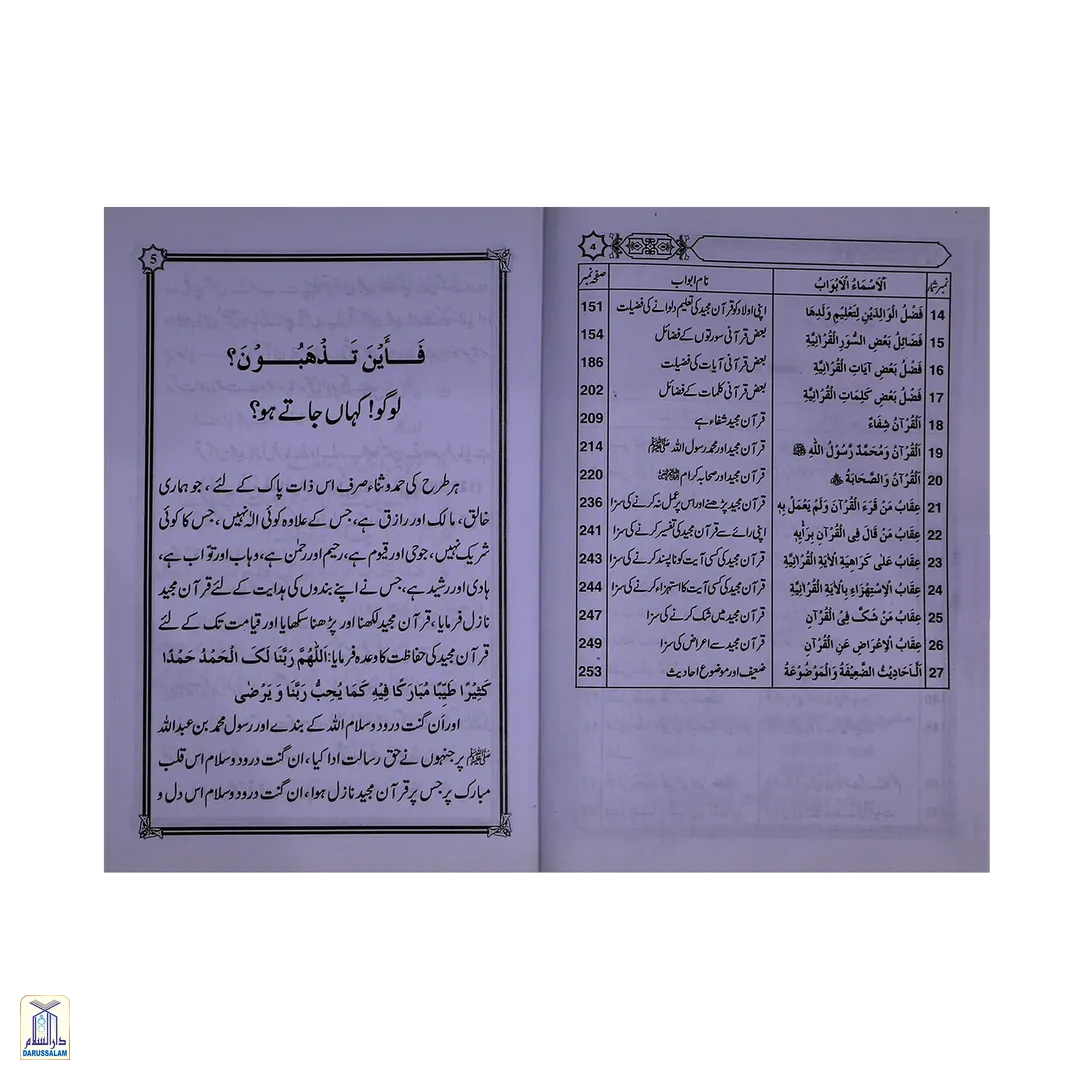 4
نمبر شمار اَلْاَسْمَاءُ الْاَبْوَابُ نام ابواب صفحہ نمبر
14 فَضْلُ الْوَالِدَيْنِ لِتَعْلِيْمِ وَلَدِهَا اپنی اولاد کو قرآن مجید کی تعلیم دلوانے کی فضیلت 151
15 فَضَائِلُ بَعْضِ السُّوَرِ الْقُرْانِيَّةِ بعض قرآنی سورتوں کے فضائل 154
16 فَضْلُ بَعْضِ آيَاتِ الْقُرْانِيَّةِ بعض قرآنی آیات کی فضیلت 186
17 فَضْلُ بَعْضِ كَلِمَاتِ الْقُرْانِيَّةِ بعض قرآنی کلمات کے فضائل 202
18 اَلْقُرْآنُ شِفَاءٌ قرآن مجید شفاء ہے 209
19 اَلْقُرْآنُ وَمُحَمَّدٌ رَّسُوْلُ اللّٰهِ ﷺ قرآن مجید اور محمد رسول اللہ ﷺ 214
20 اَلْقُرْآنُ وَالصَّحَابَةُ قرآن مجید اور صحابہ کرام 220
21 عِقَابُ مَنْ قَرَءَ الْقُرْآنَ وَلَمْ يَعْمَلْ بِهِ قرآن مجید پڑھنے اور اس پر عمل نہ کرنے کی سزا 236
22 عِقَابُ مَنْ قَالَ فِى الْقُرْآنِ بِرَاْيِهِ اپنی رائے سے قرآن مجید کی تفسیر کرنے کی سزا 241
23 عِقَابُ عَلٰى كَرَاهِيَةِ الْاٰيَةِ الْقُرْانِيَّةِ قرآن مجید کی کسی آیت کو ناپسند کرنے کی سزا 243
24 عِقَابُ الْاِسْتِهْزَاءِ بِالْاٰيَةِ الْقُرْانِيَّةِ قرآن مجید کی کسی آیت کا استہزاء کرنے کی سزا 244
25 عِقَابُ مَنْ شَكَّ فِى الْقُرْآنِ قرآن مجید میں شک کرنے کی سزا 247
26 عِقَابُ الْاِعْرَاضِ عَنِ الْقُرْآنِ قرآن مجید سے اعراض کی سزا 249
27 اَلْاَحَادِيْثُ الضَّعِيْفَةُ وَالْمَوْضُوْعَةُ ضعیف اور موضوع احادیث 253
5
فَــأَيْنَ تَـذْهَبُــوْنَ؟
لوگو! کہاں جاتے ہو؟
ہر طرح کی حمد و ثناء صرف اس ذات پاک کے لئے، جو ہماری
خالق، مالک اور رازق ہے، جس کے علاوہ کوئی الٰہ نہیں، جس کا کوئی
شریک نہیں، جو حی اور قیوم ہے، رحیم اور رحمٰن ہے، وہاب اور تواب ہے،
ہادی اور رشید ہے، جس نے اپنے بندوں کی ہدایت کے لئے قرآن مجید
نازل فرمایا، قرآن مجید لکھنا اور پڑھنا سکھایا اور قیامت تک کے لئے
قرآن مجید کی حفاظت کا وعدہ فرمایا: اَللّٰهُمَّ رَبَّنَا لَکَ الْحَمْدُ حَمْدًا
كَثِيْرًا طَيِّبًا مُبَارَكًا فِيْهِ كَمَا يُحِبُّ رَبُّنَا وَ يَرْضٰى
اور اَن گنت درود و سلام اللہ کے بندے اور رسول محمد بن عبداللہ
ﷺ پر جنہوں نے حق رسالت ادا کیا، ان گنت درود و سلام اس قلب
مبارک پر جس پر قرآن مجید نازل ہوا، ان گنت درود و سلام اس دل و
دارالسلام
DARUSSALAM